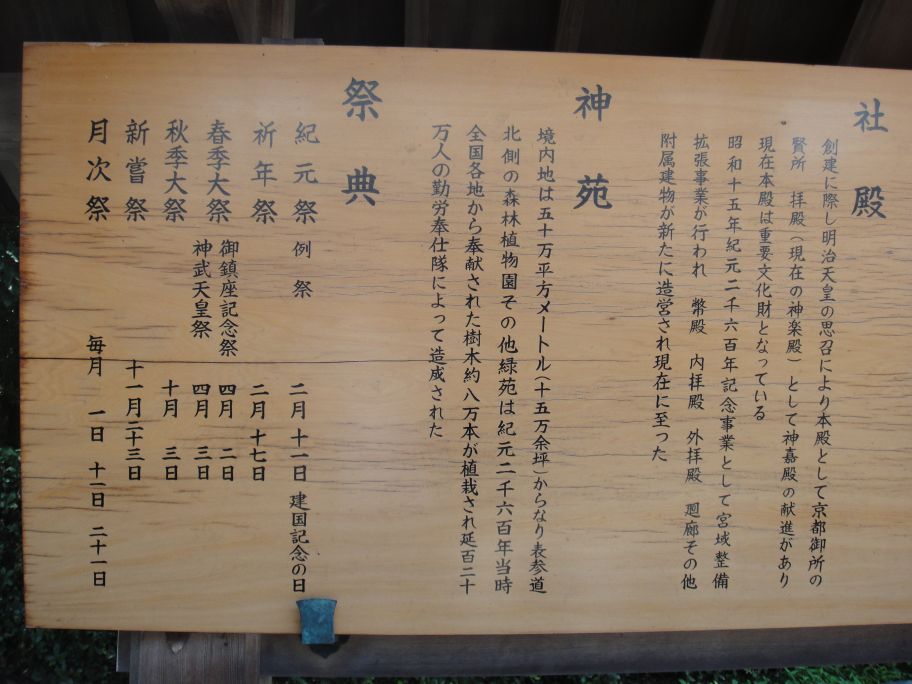 社殿
創建に際し明治天皇の思召により本殿として京都御所の
賢所 拝殿(現在の神楽殿) として神嘉殿の献進があり
現在本殿は重要文化財となっている
昭和十五年紀元二千六百年記念事業として宮域整備
拡張事業が行われ 幣殿 内拝殿 外拝殿 廻廊その他
附属建物が新たに造営され現在に至った
神苑
境内地は五十万平方メートル(十五万余坪)からなり表参道
北側の森林植物園その他緑苑は紀元二千六百年当時
全国各地から奉献された樹木約八万本が植栽され延百二十
万人の勤労奉仕隊によって造成された
祭典
紀元祭 例祭 二月十一日 建国記念の日
祈年祭 二月十七日
春季大祭 御鎮座記念祭 四月二日
神武天皇祭 四月三日
秋季大祭 十月三日
新嘗祭 十一月二十三日
月次祭 毎月 一日 十一日 二十一日